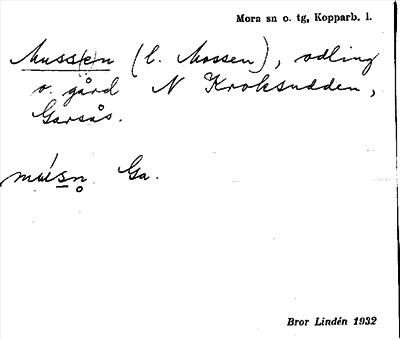 Mora sn o. tg, Kopparb. l.
Mussen (l. Mossen), odling
o. gård N Kroksudden,
Garsås.
mú̄sn̥ Ga.
Bror Lindén 1932